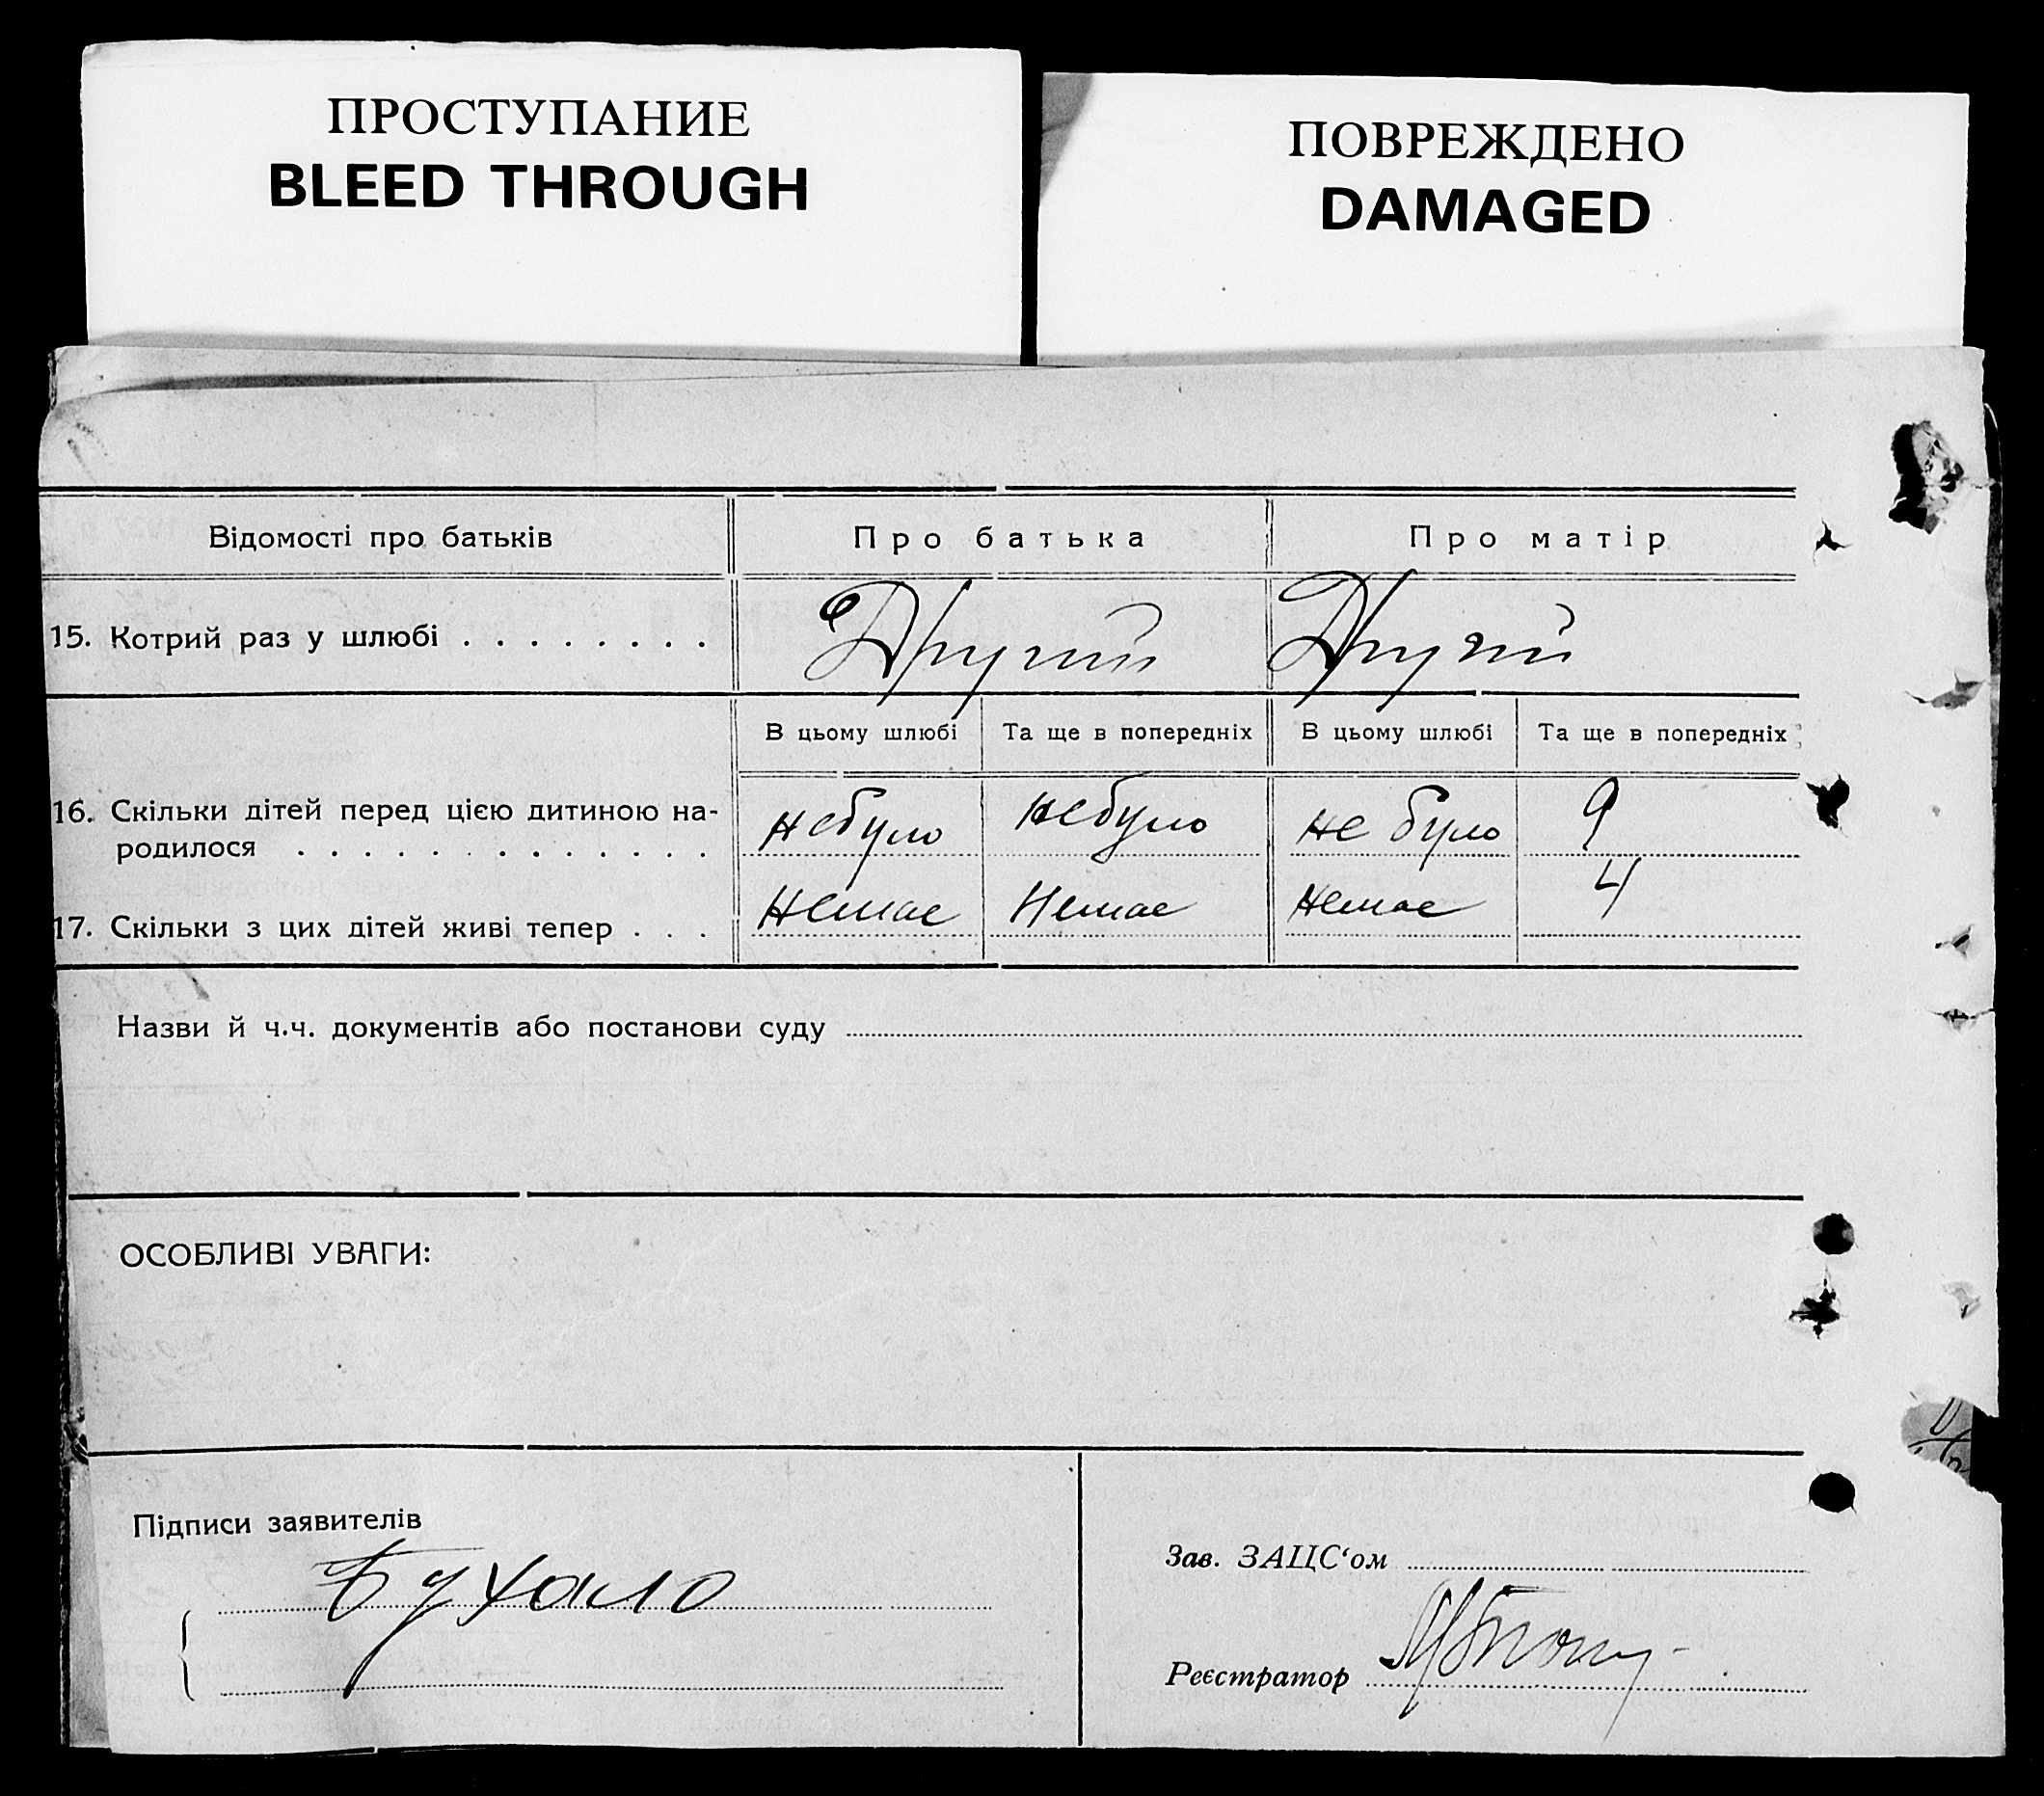 ПРОСТУПАНИЕ
BLEED THROUGH
ПОВРЕЖДЕНО
DAMAGED
Відомості про батьків Про батька Про матір
15. Котрий раз у шлюбі . . . . . . . . Другий Другий
В цьому шлюбі Та ще в попередніх В цьому шлюбі Та ще в попередніх
16. Скільки дітей перед цією дитиною на-
родилося . . . . . . . . . . . . . небуло небуло не було 9
17. Скільки з цих дітей живі тепер . . . Немає Немає Немає 4
Назви й ч.ч. документів або постанови суду
ОСОБЛИВІ УВАГИ:
Підписи заявителів
Бухало
Зав. ЗАЦС‘ом
Реєстратор